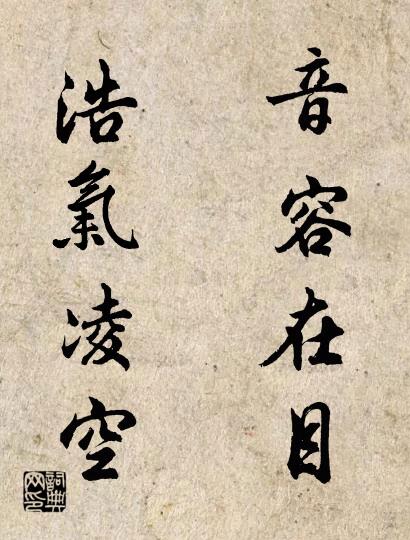 音容在目
浩氣凌空
詞典网印